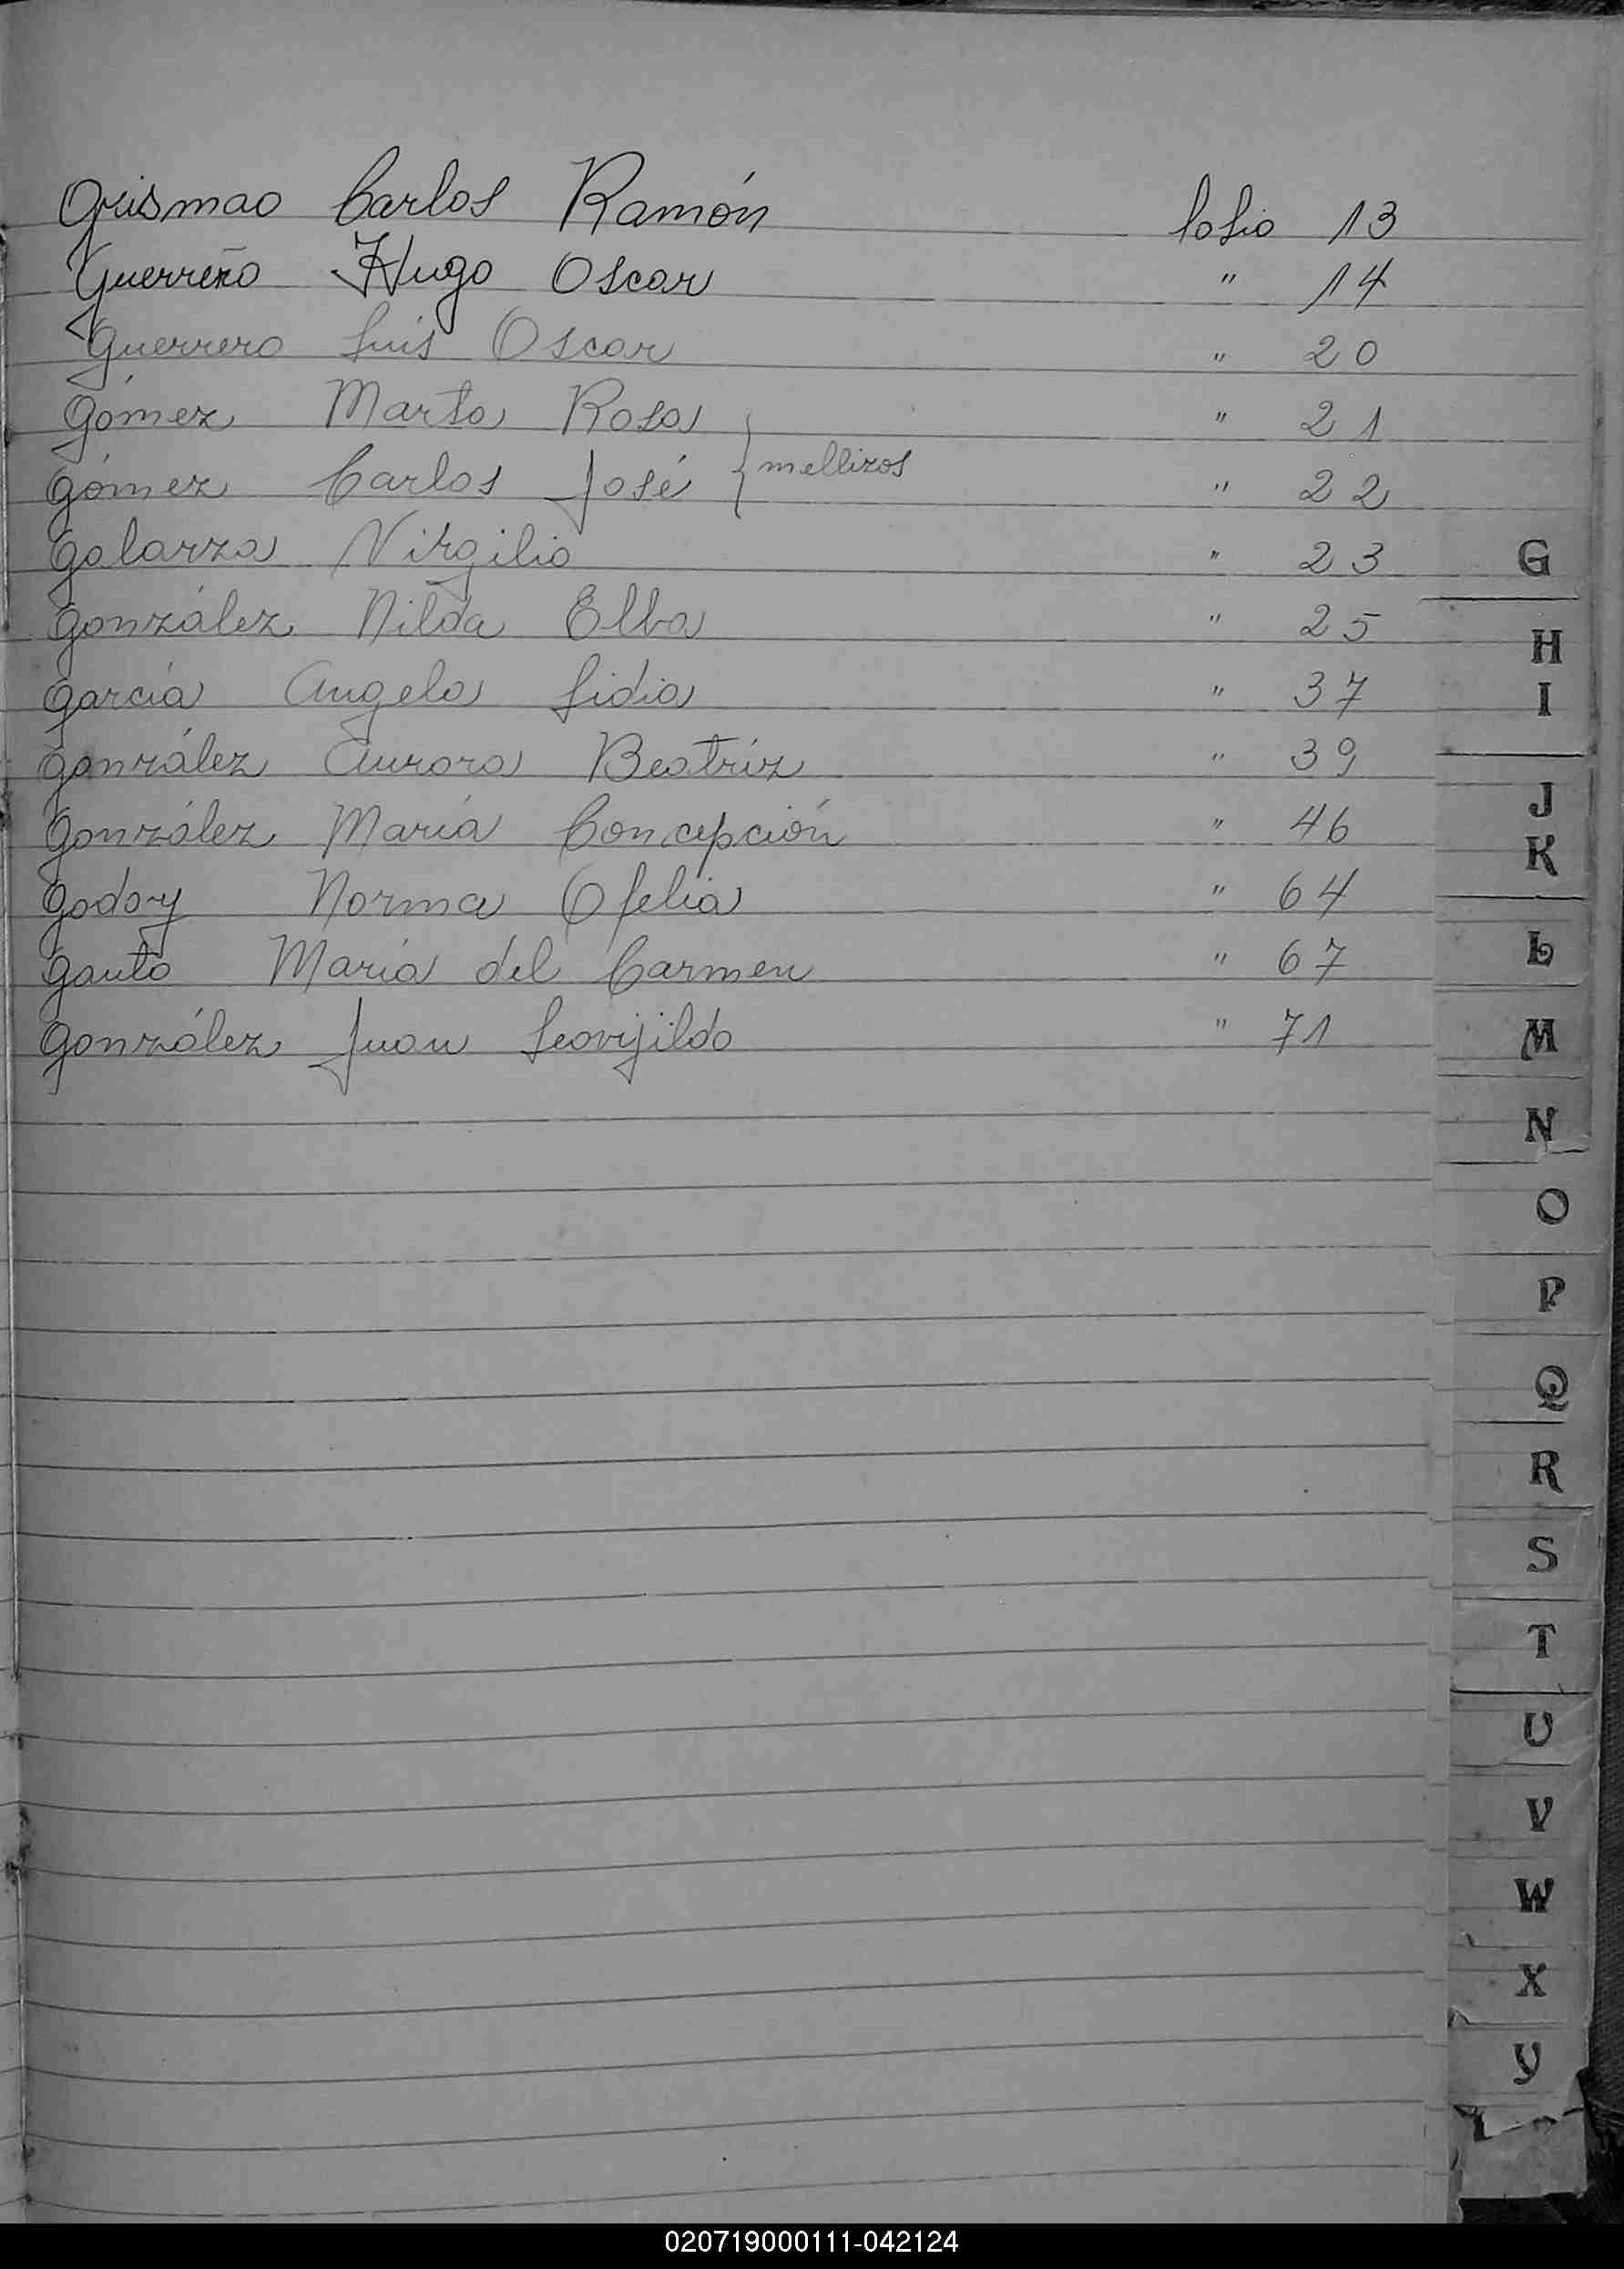 Grismao Carlos Ramón folio 13
Guerreño Hugo Oscar " 14
Guerrero Luis Oscar " 20
Gómez Marta Rosa " 21
Gómez Carlos José } mellizos " 22
Galarza Virgilio " 23
González Nilda Elba " 25
García Angela Lidia " 37
González Aurora Beatríz " 39
González María Concepción " 46
Godoy Norma Ofelia " 64
Gauto María del Carmen " 67
González Juan Leovijildo " 71
G
H
I
J
K
L
M
N
O
P
Q
R
S
T
U
V
W
X
Y
020719000111-042124